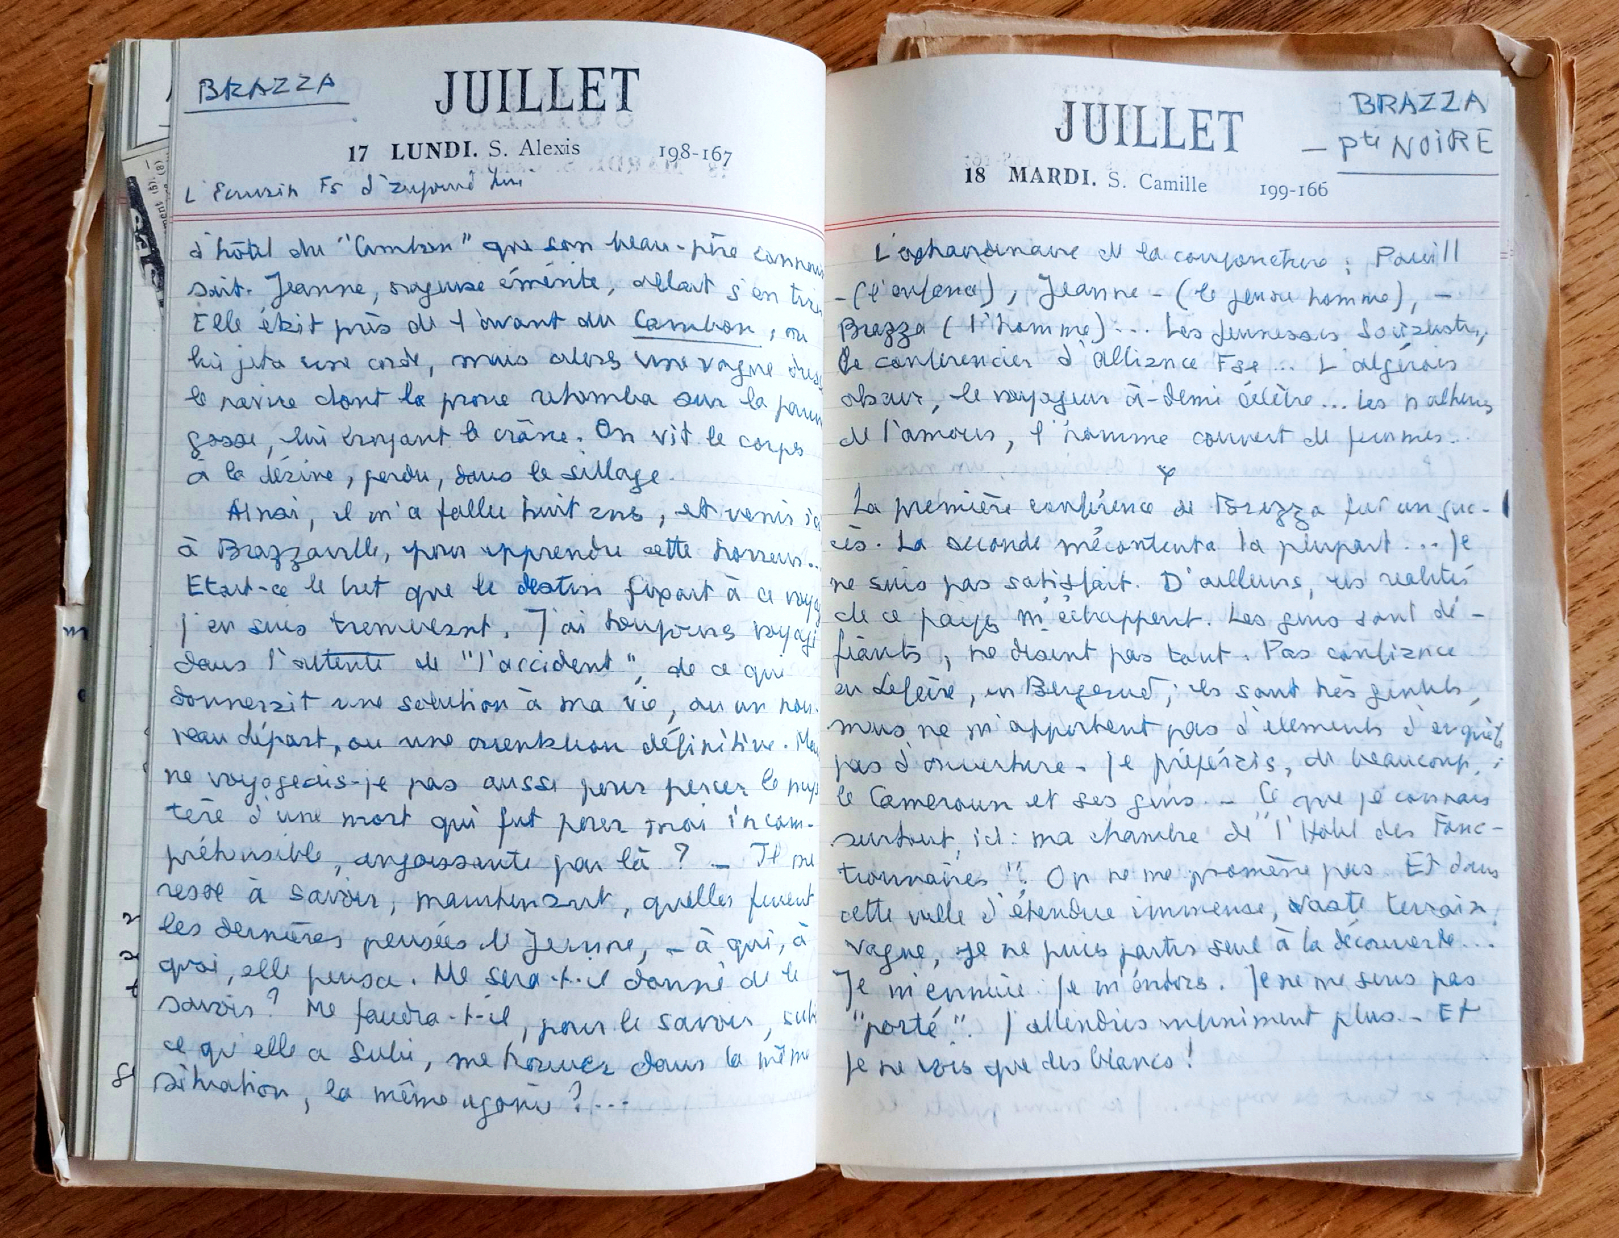 BRAZZA
JUILLET
17 LUNDI. S. Alexis 198-167
L'Ecrivain Fs d'aujourd'hui
d'hôtel du "Cambon" que son beau-père connais
sait. Jeanne, nageuse émérite, allait s'en tirer
Elle était près de l'avant du Cambon, on
lui jeta une corde, mais alors une vague
le navire dont la proue retomba sur la pauv
gosse, lui broyant le crâne. On vit le corps
à la dérive, perdu, dans le sillage.
Ainsi, il m'a fallu huit ans, et venir ici
à Brazzaville, pour apprendre cette horreur...
Etait-ce le but que le destin fixait à ce voyag
j'en suis bouleversé. J'ai toujours voyagé
dans l'attente de "l'accident", de ce qui
donnerait une solution à ma vie, ou un nou-
veau départ, ou une orientation définitive. Mais
ne voyageais-je pas aussi pour percer le mys
tère d'une mort qui fut pour moi incom-
préhensible, angoissante par là ? — Il me
reste à savoir, maintenant, quelles furent
les dernières pensées de Jeanne, — à qui, à
quoi, elle pensa. Me sera-t-il donné de le
savoir ? Me faudra-t-il, pour le savoir, subi
ce qu'elle a subi, me trouver dans la même
situation, la même agonie ?...
BRAZZA
— Pte NOIRE
JUILLET
18 MARDI. S. Camille 199-166
L'extraordinaire de la conjoncture : Pouill
- (l'enfance), Jeanne - (le jeune homme), —
Brazza (l'homme)... Les Jeunesses Socialistes,
le conférencier d'alliance Fse... L'algérois
obscur, le voyageur à-demi célèbre... Les malheurs
de l'amour, l'homme couvert de femmes..
La première conférence de Brazza fut un suc-
cès. La seconde mécontenta la plupart... Je
ne suis pas satisfait. D'ailleurs, les réalités
de ce pays m'échappent. Les gens sont dé-
fiants, ne disent pas tout. Pas confiance
en Lefeivre, en Bergerud ; ils sont très gentils,
mais ne m'apportent pas d'éléments d'enquête
pas d'ouverture. Je préférais, de beaucoup,
le Cameroun et ses gens. — Ce que je connais
surtout, ici : ma chambre de "l'Hôtel des Fonc-
tionnaires". On ne me promène pas. Et dans
cette ville d'étendue immense, vaste terrain
vague, je ne puis partir seul à la découverte...
Je m'ennuie. Je m'endors. Je ne me sens pas
"porté". J'attendais infiniment plus. — Et
je ne vois que des blancs !